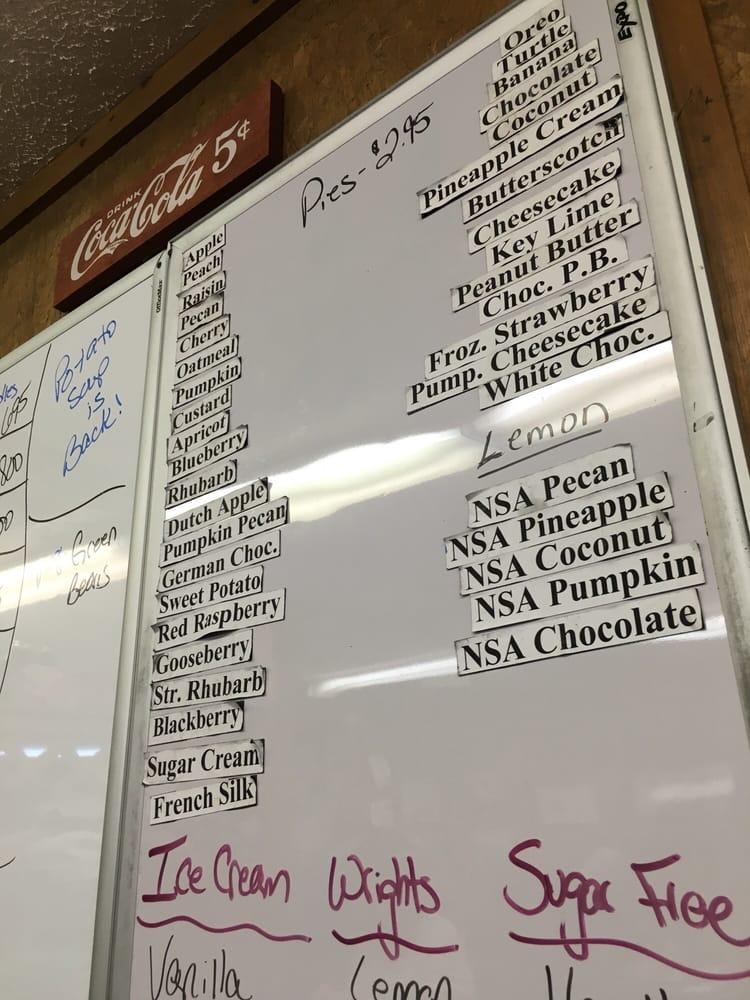 DRINK
Coca-Cola 5¢
EXPO
OfficeMax
Potato
Soup
is
Back!
Green
Beans
Pies - $2.95
Apple
Peach
Raisin
Pecan
Cherry
Oatmeal
Pumpkin
Custard
Apricot
Blueberry
Rhubarb
Dutch Apple
Pumpkin Pecan
German Choc.
Sweet Potato
Red Raspberry
Gooseberry
Str. Rhubarb
Blackberry
Sugar Cream
French Silk
Oreo
Turtle
Banana
Chocolate
Coconut
Pineapple Cream
Butterscotch
Cheesecake
Key Lime
Peanut Butter
Choc. P.B.
Froz. Strawberry
Pump. Cheesecake
White Choc.
Lemon
NSA Pecan
NSA Pineapple
NSA Coconut
NSA Pumpkin
NSA Chocolate
Ice Cream
Vanilla
Wrights
Lemon
Sugar Free